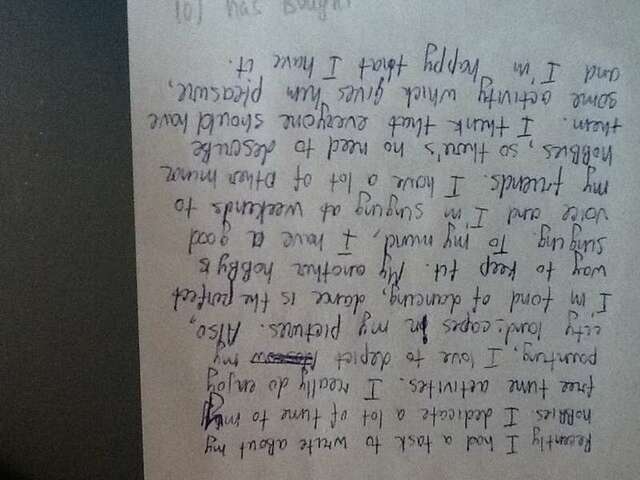 Recently I had a task to write about my
hobbies. I dedicate a lot of time to my
free time activites. I really do enjoy
painting, I love to depict my
city land-scapes in my pictures. Also,
I'm fond of dancing, dance is the perfect
way to keep fit. My another hobby is
singing. To my mind, I have a good
voice and I'm singing at weekends to
my friends. I have a lot of other minor
hobbies, so there's no need to describe
them. I think that everyone should have
some activity which gives him pleasure,
and I'm happy that I have it.